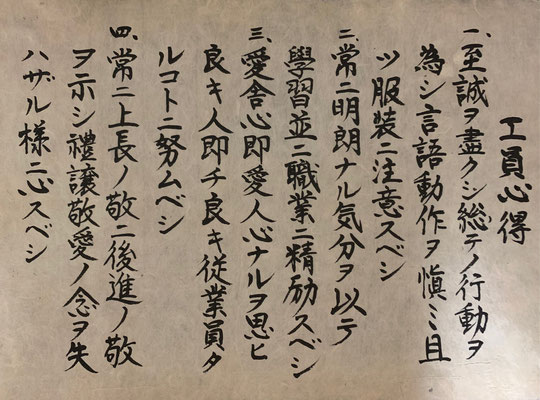 工員心得
一、至誠ヲ盡クシ総テノ行動ヲ
為シ言語動作ヲ慎ミ且
ツ服装ニ注意スベシ
二、常ニ明朗ナル気分ヲ以テ
學習並ニ職業ニ精励スベシ
三、愛舎心即愛人心ナルヲ思ヒ
良キ人即チ良キ従業員タ
ルコトニ努ムベシ
四、常ニ上長ノ敬ニ後進ノ敬
ヲ示シ禮譲敬愛ノ念ヲ失
ハザル様ニ心スベシ